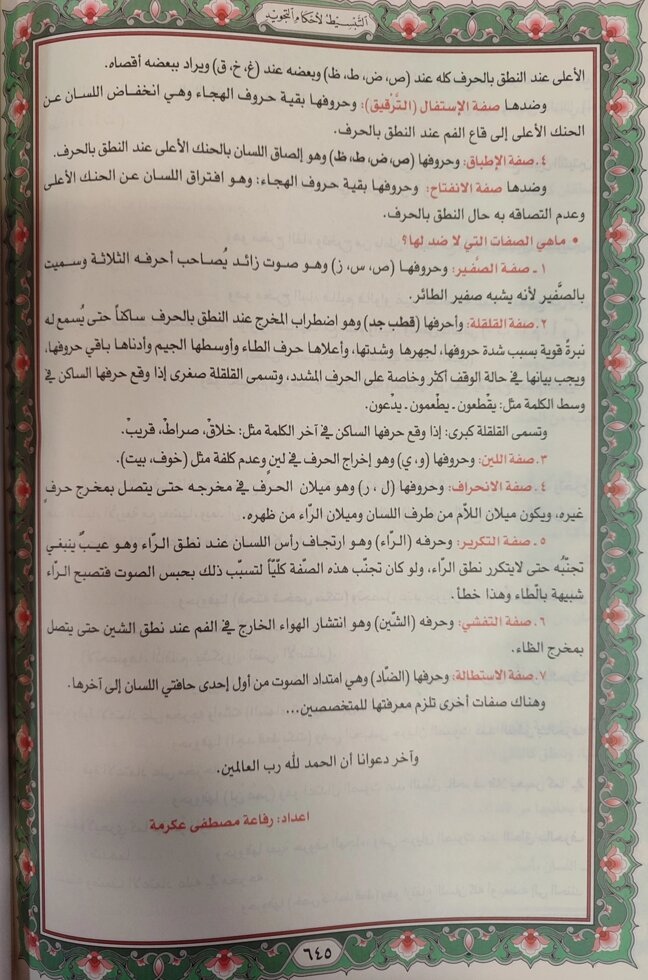 التبسيط لأحكام التجويد
الأعلى عند النطق بالحرف كله عند (ص، ض، ط، ظ) وبعضه عند (غ، خ، ق) ويراد ببعضه أقصاه.
وضدها صفة الإستفال (التَّرقيق): وحروفها بقية حروف الهجاء وهي انخفاض اللسان عن
الحنك الأعلى إلى قاع الفم عند النطق بالحرف.
٤ ـ صفة الإطباق: وحروفها (ص، ض، ط، ظ) وهو إلصاق اللسان بالحنك الأعلى عند النطق بالحرف.
وضدها صفة الانفتاح: وحروفها بقية حروف الهجاء: وهو افتراق اللسان عن الحنك الأعلى
وعدم التصاقه به حال النطق بالحرف.
• ماهي الصفات التي لا ضد لها؟
١ ـ صفة الصَّفير: وحروفها (ص، س، ز) وهو صوت زائد يُصاحب أحرفه الثلاثة وسميت
بالصَّفير لأنه يشبه صفير الطائر.
٢. صفة القلقلة: وأحرفها (قطب جد) وهو اضطراب المخرج عند النطق بالحرف ساكناً حتى يُسمع له
نبرةً قوية بسبب شدة حروفها، لجهرها وشدتها، وأعلاها حرف الطاء وأوسطها الجيم وأدناها باقي حروفها،
ويجب بيانها في حالة الوقف أكثر وخاصة على الحرف المشدد، وتسمى القلقلة صغرى إذا وقع حرفها الساكن في
وسط الكلمة مثل: يقْطعون ـ يطْعمون ـ يدْعون.
وتسمى القلقلة كبرى: إذا وقع حرفها الساكن في آخر الكلمة مثل: خلاقْ، صراطْ، قريبْ.
٣. صفة اللين: وحروفها (و، ي) وهو إخراج الحرف في لينٍ وعدم كلفة مثل (خوف، بيت).
٤. صفة الانحراف: وحروفها (ل ، ر) وهو ميلان الحرف في مخرجه حتى يتصل بمخرج حرفٍ
غيره، ويكون ميلان اللاَّم من طرف اللسان وميلان الرَّاء من ظهره.
٥ ـ صفة التكرير: وحرفه (الرَّاء) وهو ارتجاف رأس اللسان عند نطق الرَّاء وهو عيبٌ ينبغي
تجنّبُه حتى لايتكرر نطق الرَّاء، ولو كان تجنب هذه الصّفة كلّيّاً لتسبّب ذلك بحبس الصوت فتصبح الرَّاء
شبيهة بالطّاء وهذا خطأ.
٦. صفة التفشي: وحرفه (الشّين) وهو انتشار الهواء الخارج في الفم عند نطق الشين حتى يتصل
بمخرج الظاء.
٧. صفة الاستطالة: وحرفها (الضّاد) وهي امتداد الصوت من أول إحدى حافتي اللسان إلى آخرها.
وهناك صفات أخرى تلزم معرفتها للمتخصصين...
وآخر دعوانا أن الحمد لله رب العالمين.
اعداد: رفاعة مصطفى عكرمة
٦٤٥